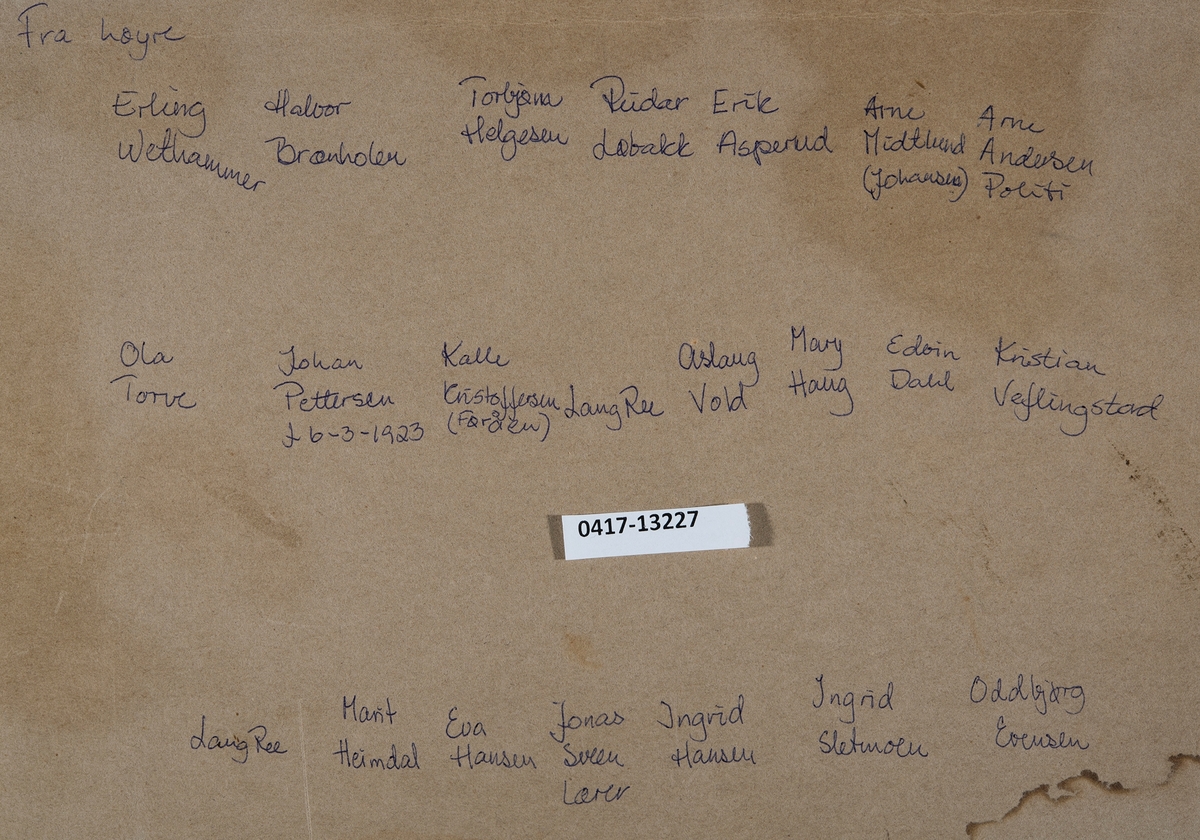 Fra høyre
Erling Halvor Torbjørn Reidar Erik Arne Arne
Wethammer Brænholen Helgesen Løbakk Asperud Midtlund Andersen
(Johansen) Politi
Ola Johan Kalle Aslaug Mary Edvin Kristian
Torve Pettersen Kristoffersen LangRee Vold Haug Dahl Veflingstad
f 6-3-1923
0417-13227
LangRee Marit Eva Jonas Ingrid Ingrid Oddbjørg
Heimdal Hansen Sveen Hansen Sletmoen Evensen
Lærer